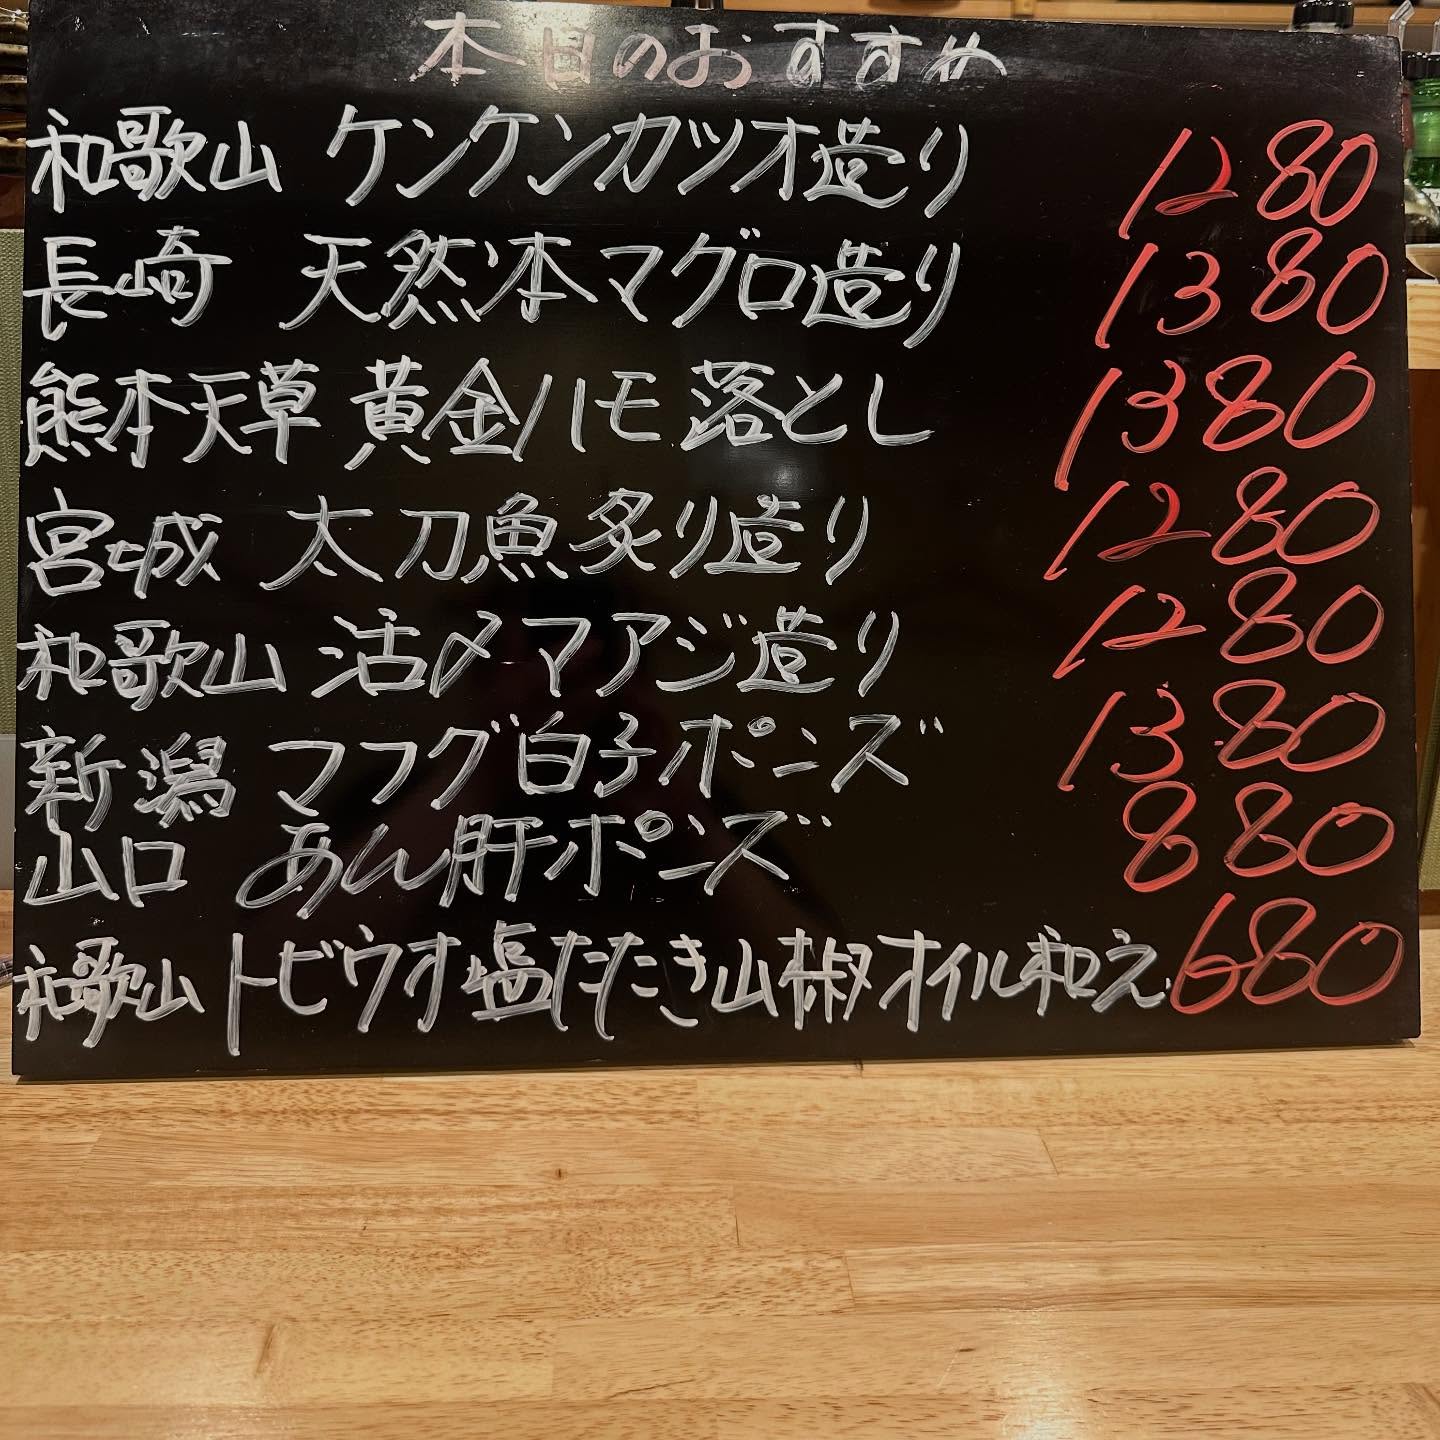 本日のおすすめ
和歌山 ケンケンカツオ造り 1280
長崎 天然本マグロ造り 1380
熊本天草 黄金ハモ落とし 1380
宮城 太刀魚炙り造り 1280
和歌山 活〆マアジ造り 1280
新潟 マフグ白子ポンズ 1380
山口 あん肝ポンズ 880
和歌山 トビウオ塩たたき山椒オイル和え 680